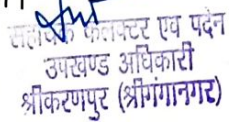 सहायक कलक्टर एवं पदेन
उपखण्ड अधिकारी
श्रीकरणपुर (श्रीगंगानगर)